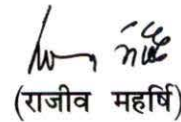 (राजीव महर्षि)